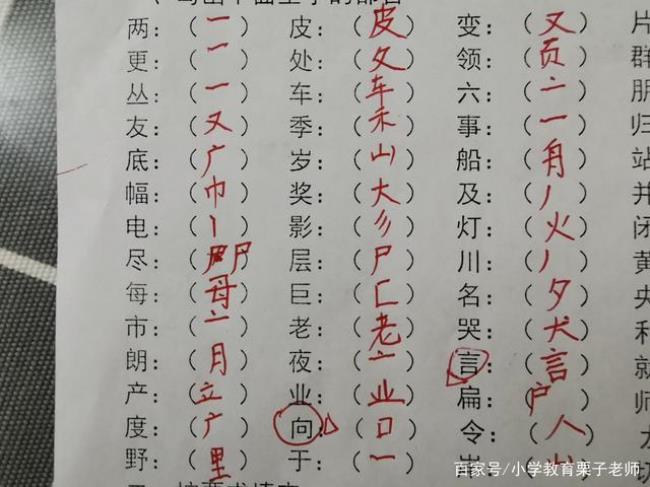 两：（一） 皮：（皮） 变：（又） 片
更：（一） 处：（夂） 领：（页） 群
丛：（一） 车：（车） 六：（亠） 朋
友：（又） 季：（禾） 事：（一） 归
底：（广） 岁：（山） 船：（舟） 站
幅：（巾） 奖：（大） 及：（丿） 并
电：（丨） 影：（彡） 灯：（火） 闭
尽：（尸） 层：（尸） 川：（丿） 黄
每：（母） 巨：（匚） 名：（夕） 央
市：（亠） 老：（老） 哭：（犬） 利
朗：（月） 夜：（亠） 言：（言） 就
产：（立） 业：（业） 扁：（户） 师
度：（广） 向：（口） 令：（人）
野：（里） 于：（一）
百家号/小学教育栗子老师